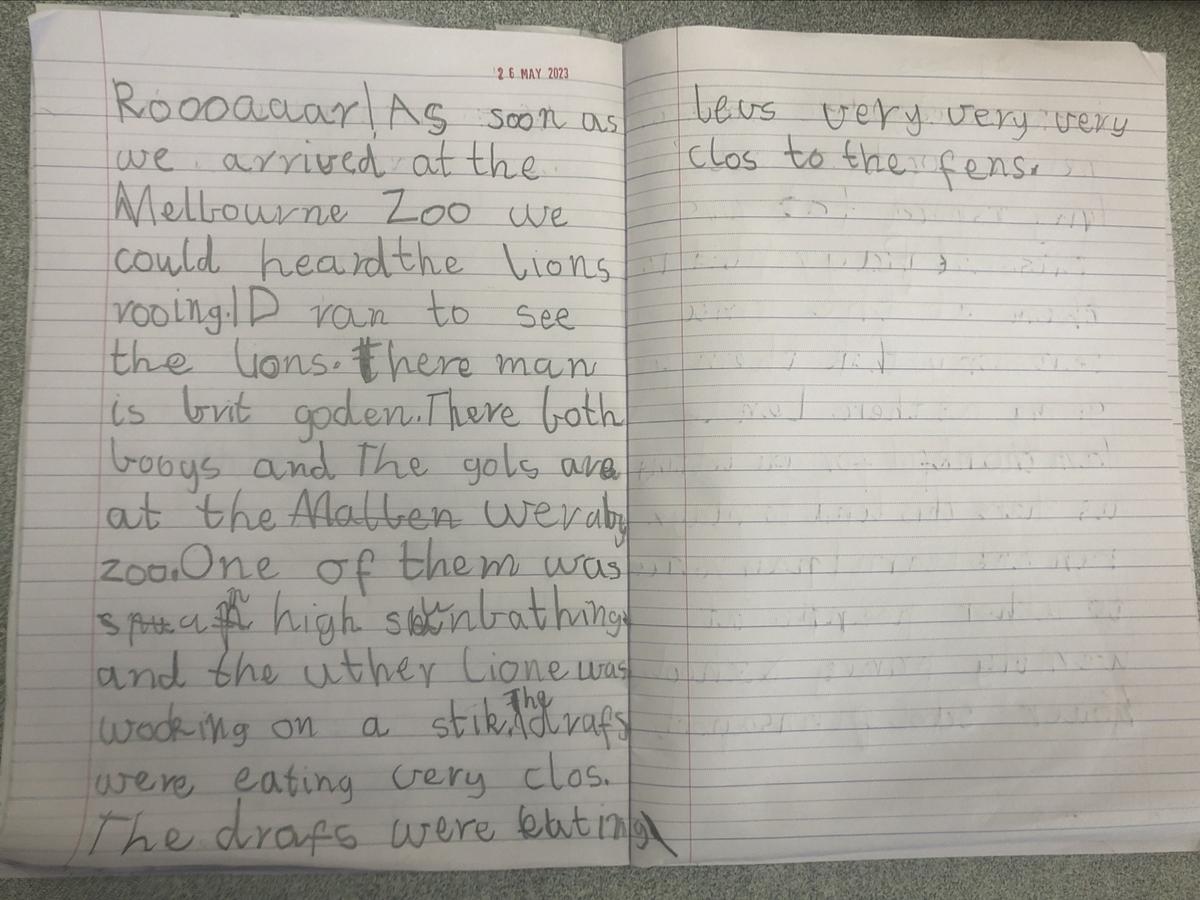 26 MAY 2023
Roooaaar! As soon as
we arrived at the
Melbourne Zoo we
could heard the lions
rooing. I ran to see
the lions. there man
is brit goden. There both
booys and The gols are
at the weraby
zoo. One of them was
high sunbathing
and the uther lione was
wocking on a stik. The drafs
were eating very clos.
The drafs were eating
levs very very very
clos to the fens.